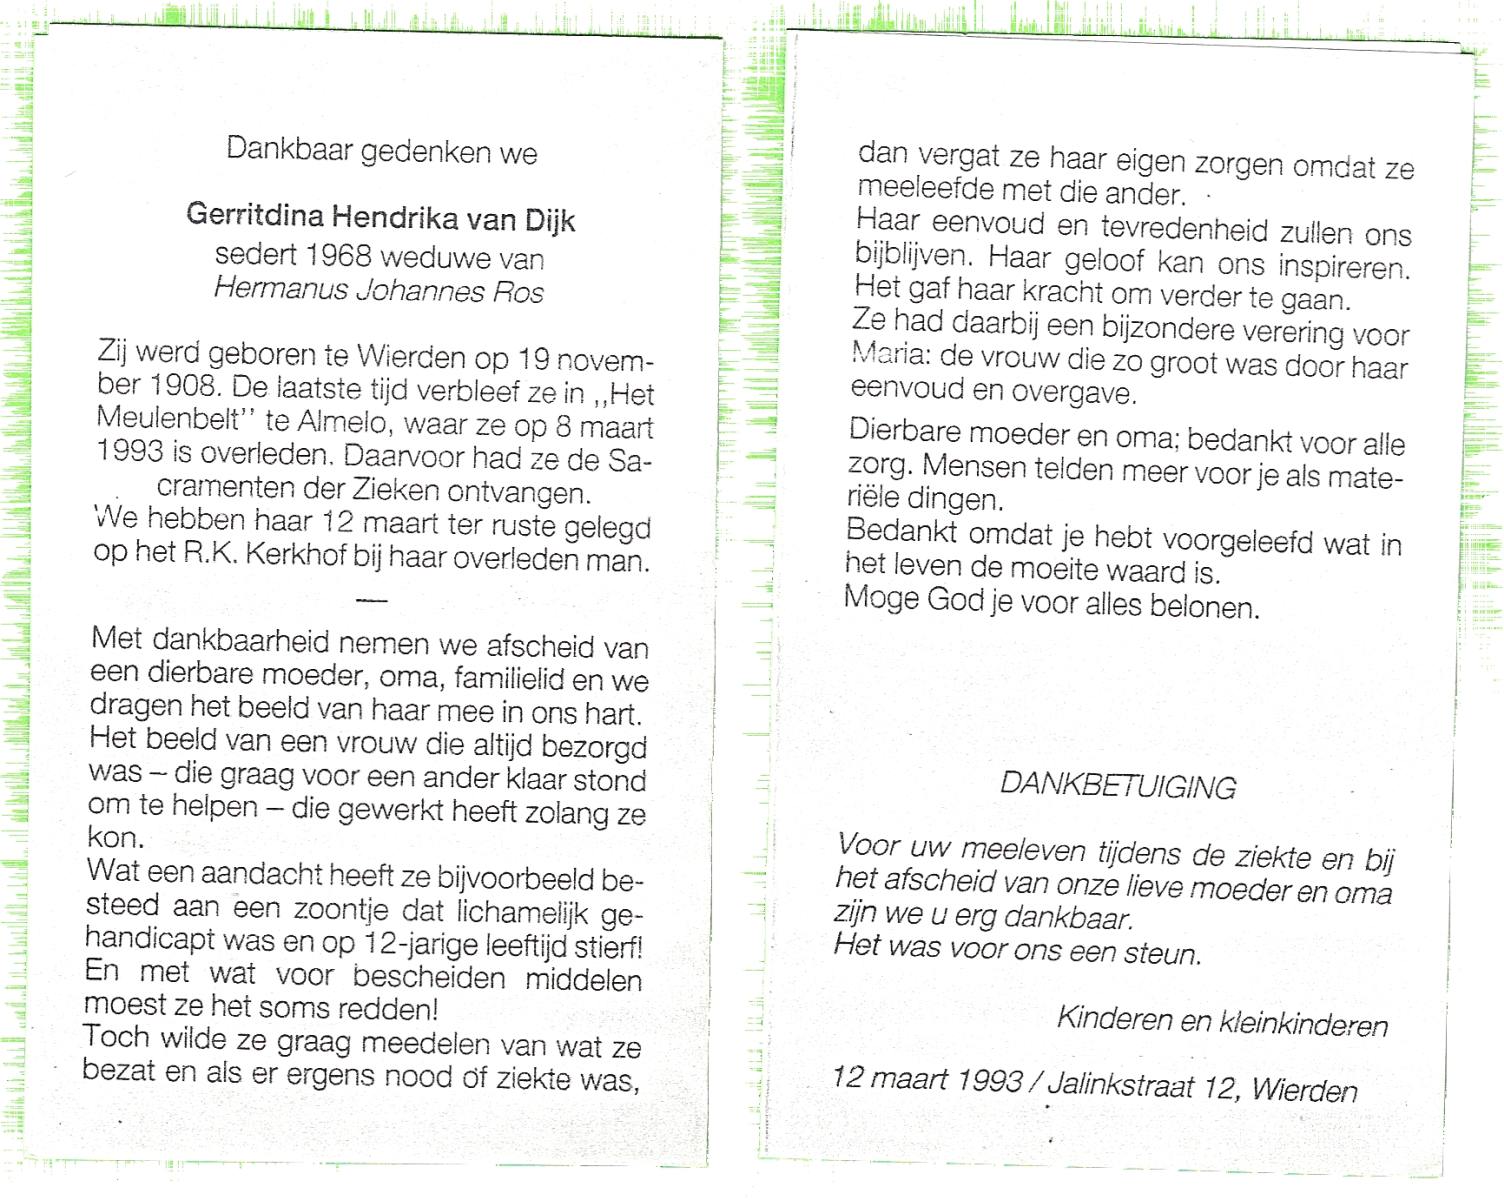 Dankbaar gedenken we
Gerritdina Hendrika van Dijk
sedert 1968 weduwe van
Hermanus Johannes Ros
Zij werd geboren te Wierden op 19 novem-
ber 1908. De laatste tijd verbleef ze in ,,Het
Meulenbelt'' te Almelo, waar ze op 8 maart
1993 is overleden. Daarvoor had ze de Sa-
cramenten der Zieken ontvangen.
We hebben haar 12 maart ter ruste gelegd
op het R.K. Kerkhof bij haar overleden man.
—
Met dankbaarheid nemen we afscheid van
een dierbare moeder, oma, familielid en we
dragen het beeld van haar mee in ons hart.
Het beeld van een vrouw die altijd bezorgd
was – die graag voor een ander klaar stond
om te helpen – die gewerkt heeft zolang ze
kon.
Wat een aandacht heeft ze bijvoorbeeld be-
steed aan een zoontje dat lichamelijk ge-
handicapt was en op 12-jarige leeftijd stierf!
En met wat voor bescheiden middelen
moest ze het soms redden!
Toch wilde ze graag meedelen van wat ze
bezat en als er ergens nood of ziekte was,
dan vergat ze haar eigen zorgen omdat ze
meeleefde met die ander.
Haar eenvoud en tevredenheid zullen ons
bijblijven. Haar geloof kan ons inspireren.
Het gaf haar kracht om verder te gaan.
Ze had daarbij een bijzondere verering voor
Maria: de vrouw die zo groot was door haar
eenvoud en overgave.
Dierbare moeder en oma; bedankt voor alle
zorg. Mensen telden meer voor je als mate-
riële dingen.
Bedankt omdat je hebt voorgeleefd wat in
het leven de moeite waard is.
Moge God je voor alles belonen.
DANKBETUIGING
Voor uw meeleven tijdens de ziekte en bij
het afscheid van onze lieve moeder en oma
zijn we u erg dankbaar.
Het was voor ons een steun.
Kinderen en kleinkinderen
12 maart 1993 / Jalinkstraat 12, Wierden